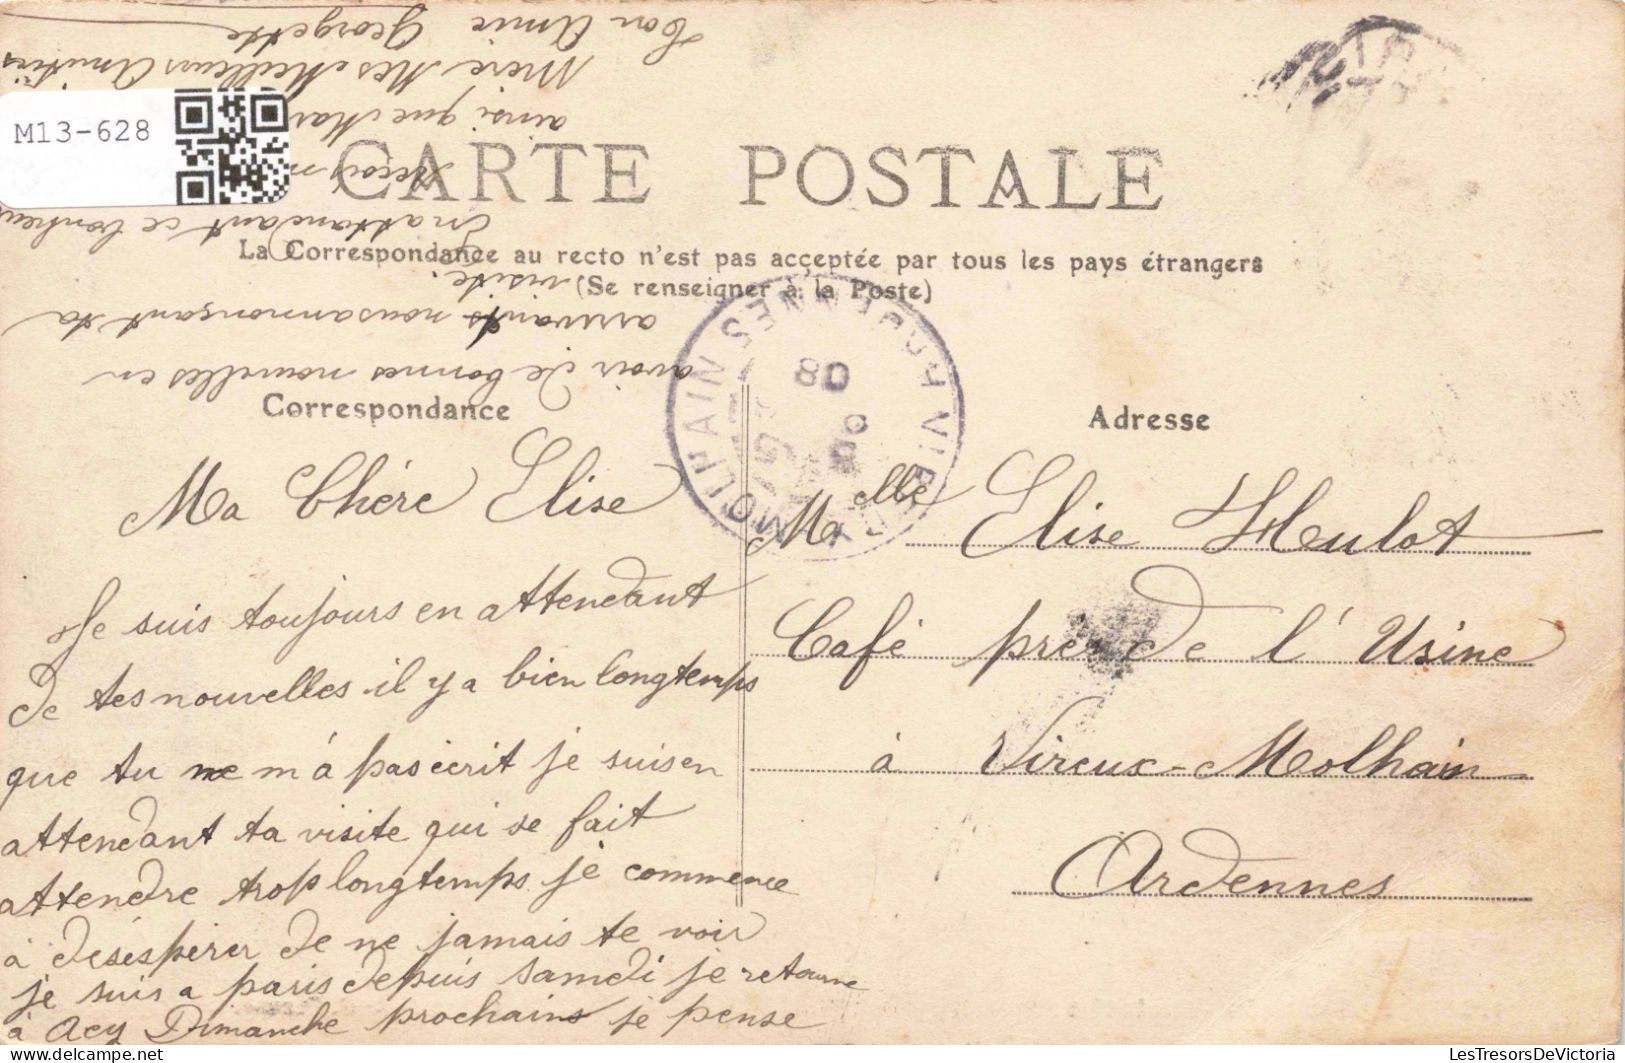 M13-628
CARTE POSTALE
La Correspondance au recto n'est pas acceptée par tous les pays étrangers
(Se renseigner à la Poste)
VIREUX-MOLHAIN
ARDENNES
08
Correspondance
Ma Chére Elise
Je suis toujours en attendant
de tes nouvelles il y a bien longtemps
que tu ne m'à pas écrit je suis en
attendant ta visite qui se fait
attendre trop longtemps je commence
à deséspérer de ne jamais te voir
je suis a paris depuis samedi je retourne
à Acy Dimanche prochains je pense
avoir de bonnes nouvelles en
arrivants nous annonçant ta
visite.
En attandant ce bonheur
Reçois
ainsi que
Mére Mes Meilleurs Amitiés
Ton Amie Georgette
Adresse
Melle Elise Hulot
Café près de l'Usine
à Vireux-Molhain
Ardennes
LesTresorsDeVictoria